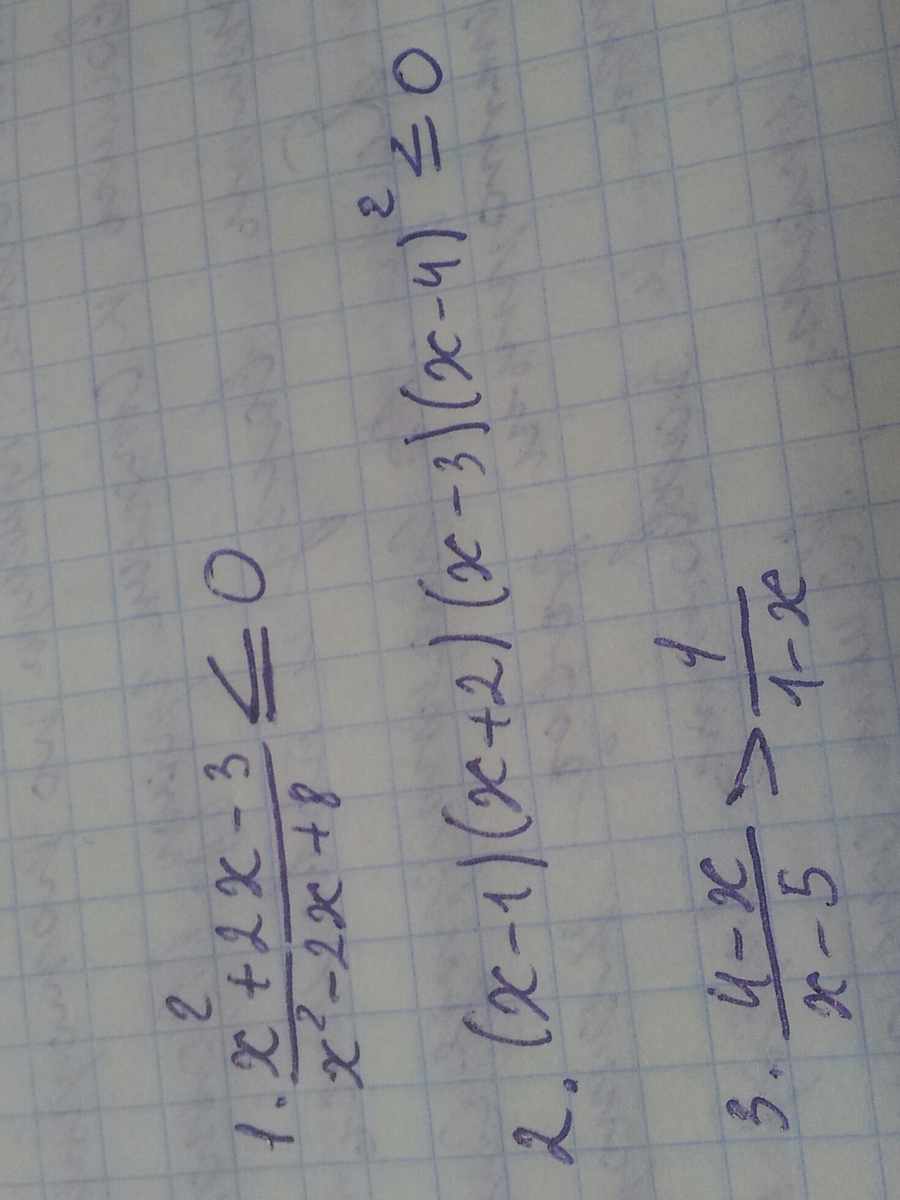 1. \frac{x^2+2x-3}{x^2-2x+8} ≤ 0
2. (x-1)(x+2)(x-3)(x-4)^2 ≤ 0
3. \frac{4-x}{x-5} > \frac{1}{1-x}